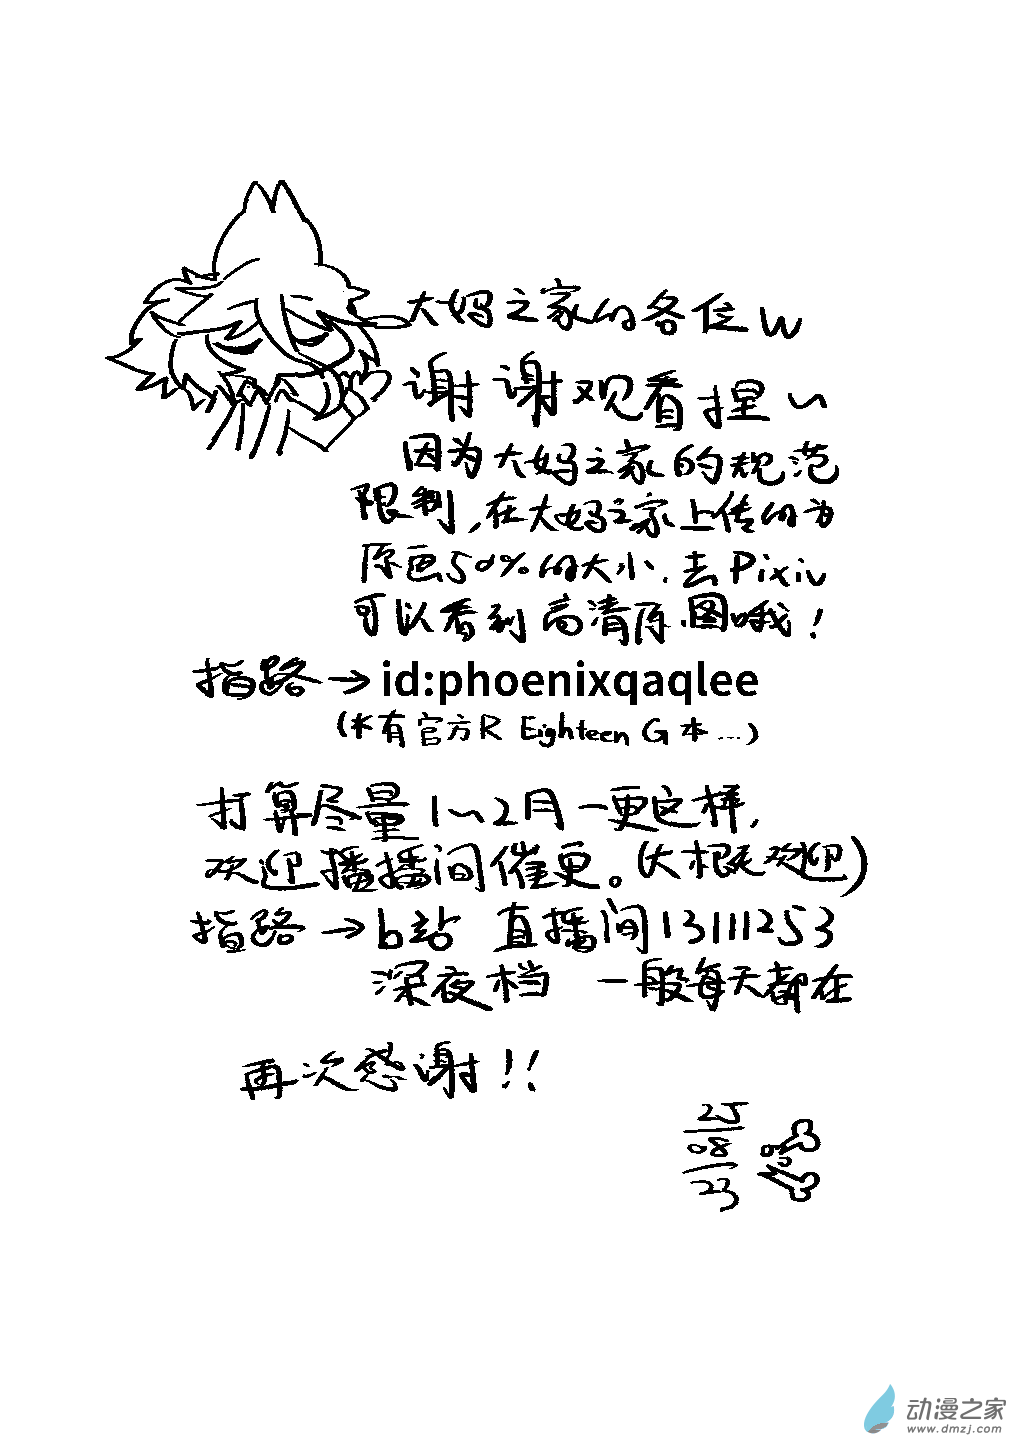 大妈之家的各位w
谢谢观看捏~
因为大妈之家的规范
限制,在大妈之家上传的为
原画50%的大小.去Pixiv
可以看到高清原图哦!
指路→id:phoenixqaqlee
(*有官方R Eighteen G本…)
打算尽量1~2月一更这样,
欢迎播播间催更。(大根无欢迎)
指路→b站 直播间13111253
深夜档 一般每天都在
再次感谢!!
25
08
23
动漫之家
www.dmzj.com